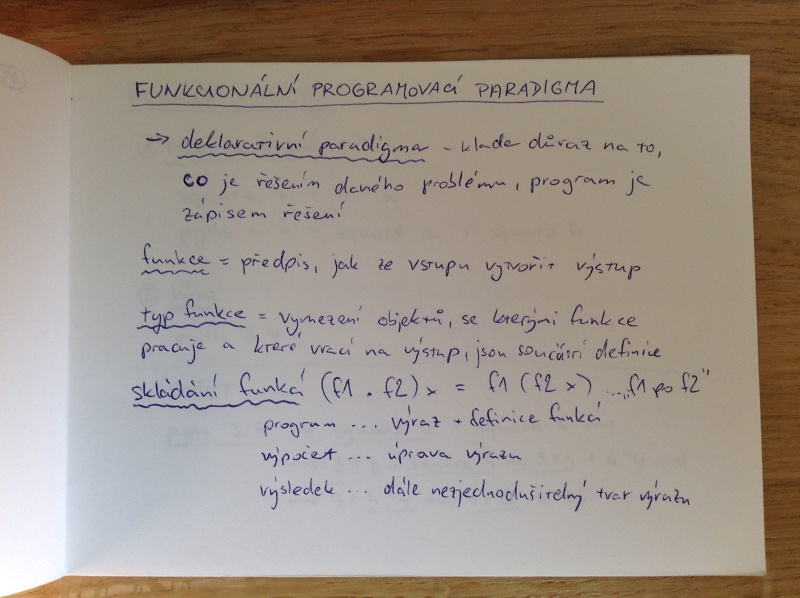 FUNKCIONÁLNÍ PROGRAMOVACÍ PARADIGMA
→ deklarativní paradigma - klade důraz na to,
co je řešením daného problému, program je
zápisem řešení
funkce = předpis, jak ze vstupu vytvořit výstup
typ funkce = vymezení objektů, se kterými funkce
pracuje a které vrací na výstup, jsou součástí definice
skládání funkcí (f1 . f2) x = f1 (f2 x) ... „f1 po f2"
program ... výraz + definice funkcí
výpočet ... úprava výrazu
výsledek ... dále nezjednodušitelný tvar výrazu